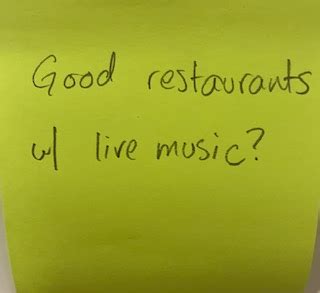 Good restaurants
w/ live music?